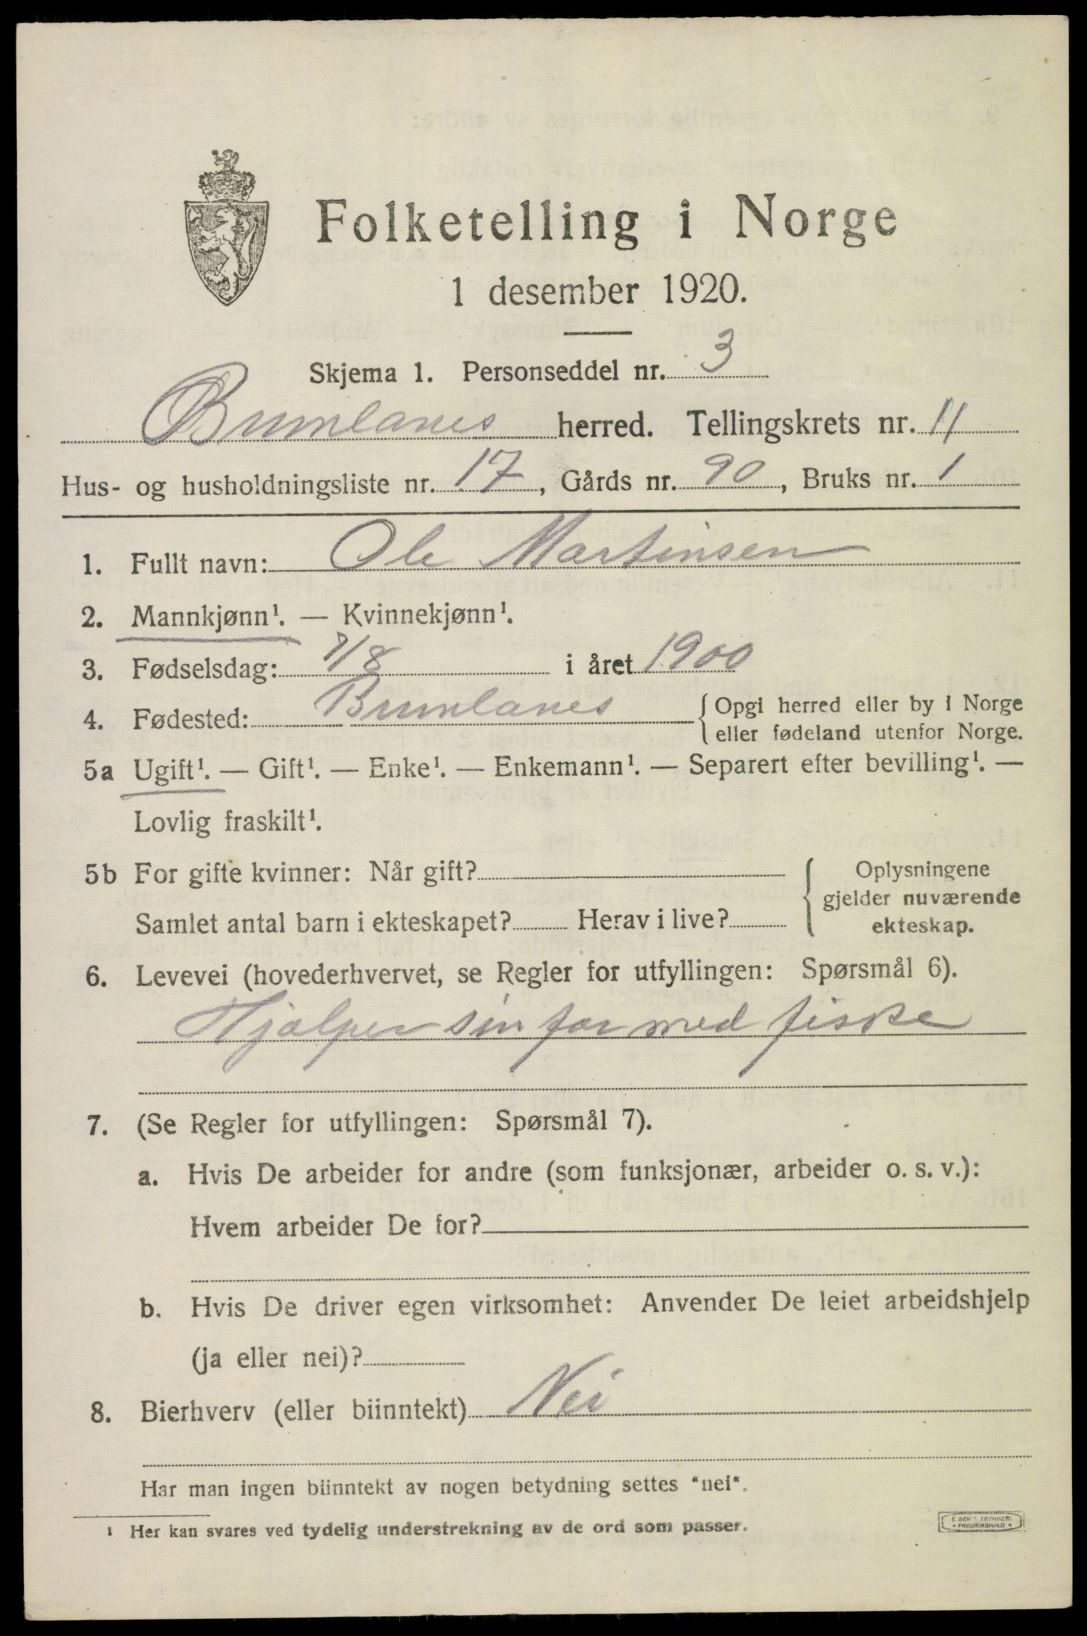 Folketelling i Norge
1 desember 1920.
Skjema 1. Personseddel nr. 3
Brunlanes herred. Tellingskrets nr. 11
Hus- og husholdningsliste nr. 17, Gårds nr. 90, Bruks nr. 1
1. Fullt navn: Ole Martinsen
2. Mannkjønn¹. — Kvinnekjønn¹.
3. Fødselsdag: 7/8 i året 1900
4. Fødested: Brunlanes {Opgi herred eller by i Norge
eller fødeland utenfor Norge.
5a Ugift¹. — Gift¹. — Enke¹. — Enkemann¹. — Separert efter bevilling¹. —
Lovlig fraskilt¹.
5b For gifte kvinner: Når gift? { Oplysningene
gjelder nuværende
Samlet antal barn i ekteskapet? Herav i live? ekteskap.
6. Levevei (hovederhvervet, se Regler for utfyllingen: Spørsmål 6).
Hjælper sin far med fiske
7. (Se Regler for utfyllingen: Spørsmål 7).
a. Hvis De arbeider for andre (som funksjonær, arbeider o. s. v.):
Hvem arbeider De for?
b. Hvis De driver egen virksomhet: Anvender De leiet arbeidshjelp
(ja eller nei)?
8. Bierhverv (eller biinntekt) Nei
Har man ingen biinntekt av nogen betydning settes "nei".
¹ Her kan svares ved tydelig understrekning av de ord som passer.